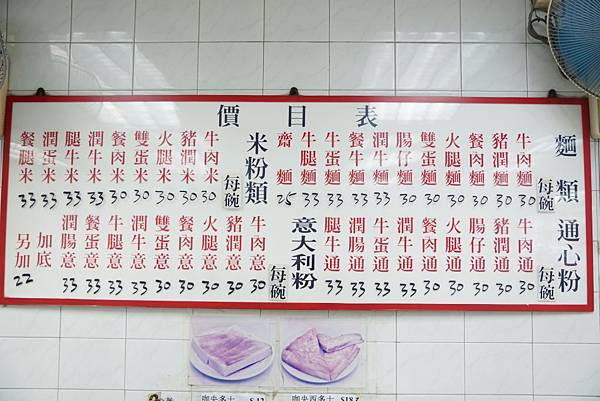 價目表
麵類
每碗
牛肉麵 30
豬潤麵 30
餐肉麵 30
火腿麵 30
雙蛋麵 30
腸仔麵 30
潤牛麵 33
餐牛麵 33
牛蛋麵 33
牛腿麵 33
齋麵 25
米粉類
每碗
牛肉米 30
豬潤米 30
火腿米 30
雙蛋米 30
餐肉米 30
潤牛米 33
腿牛米 33
潤蛋米 33
餐腿米 33
通心粉
每碗
牛肉通 30
豬潤通 30
腸仔通 30
火腿通 30
餐肉通 30
潤牛通 33
牛蛋通 33
潤腸通 33
腿牛通 33
意大利粉
每碗
牛肉意 30
豬潤意 30
火腿意 30
餐肉意 30
雙蛋意 30
潤牛意 33
牛腿意 33
餐蛋意 33
潤腸意 33
加底
另加 22
咖央多士
咖央西多士 $18